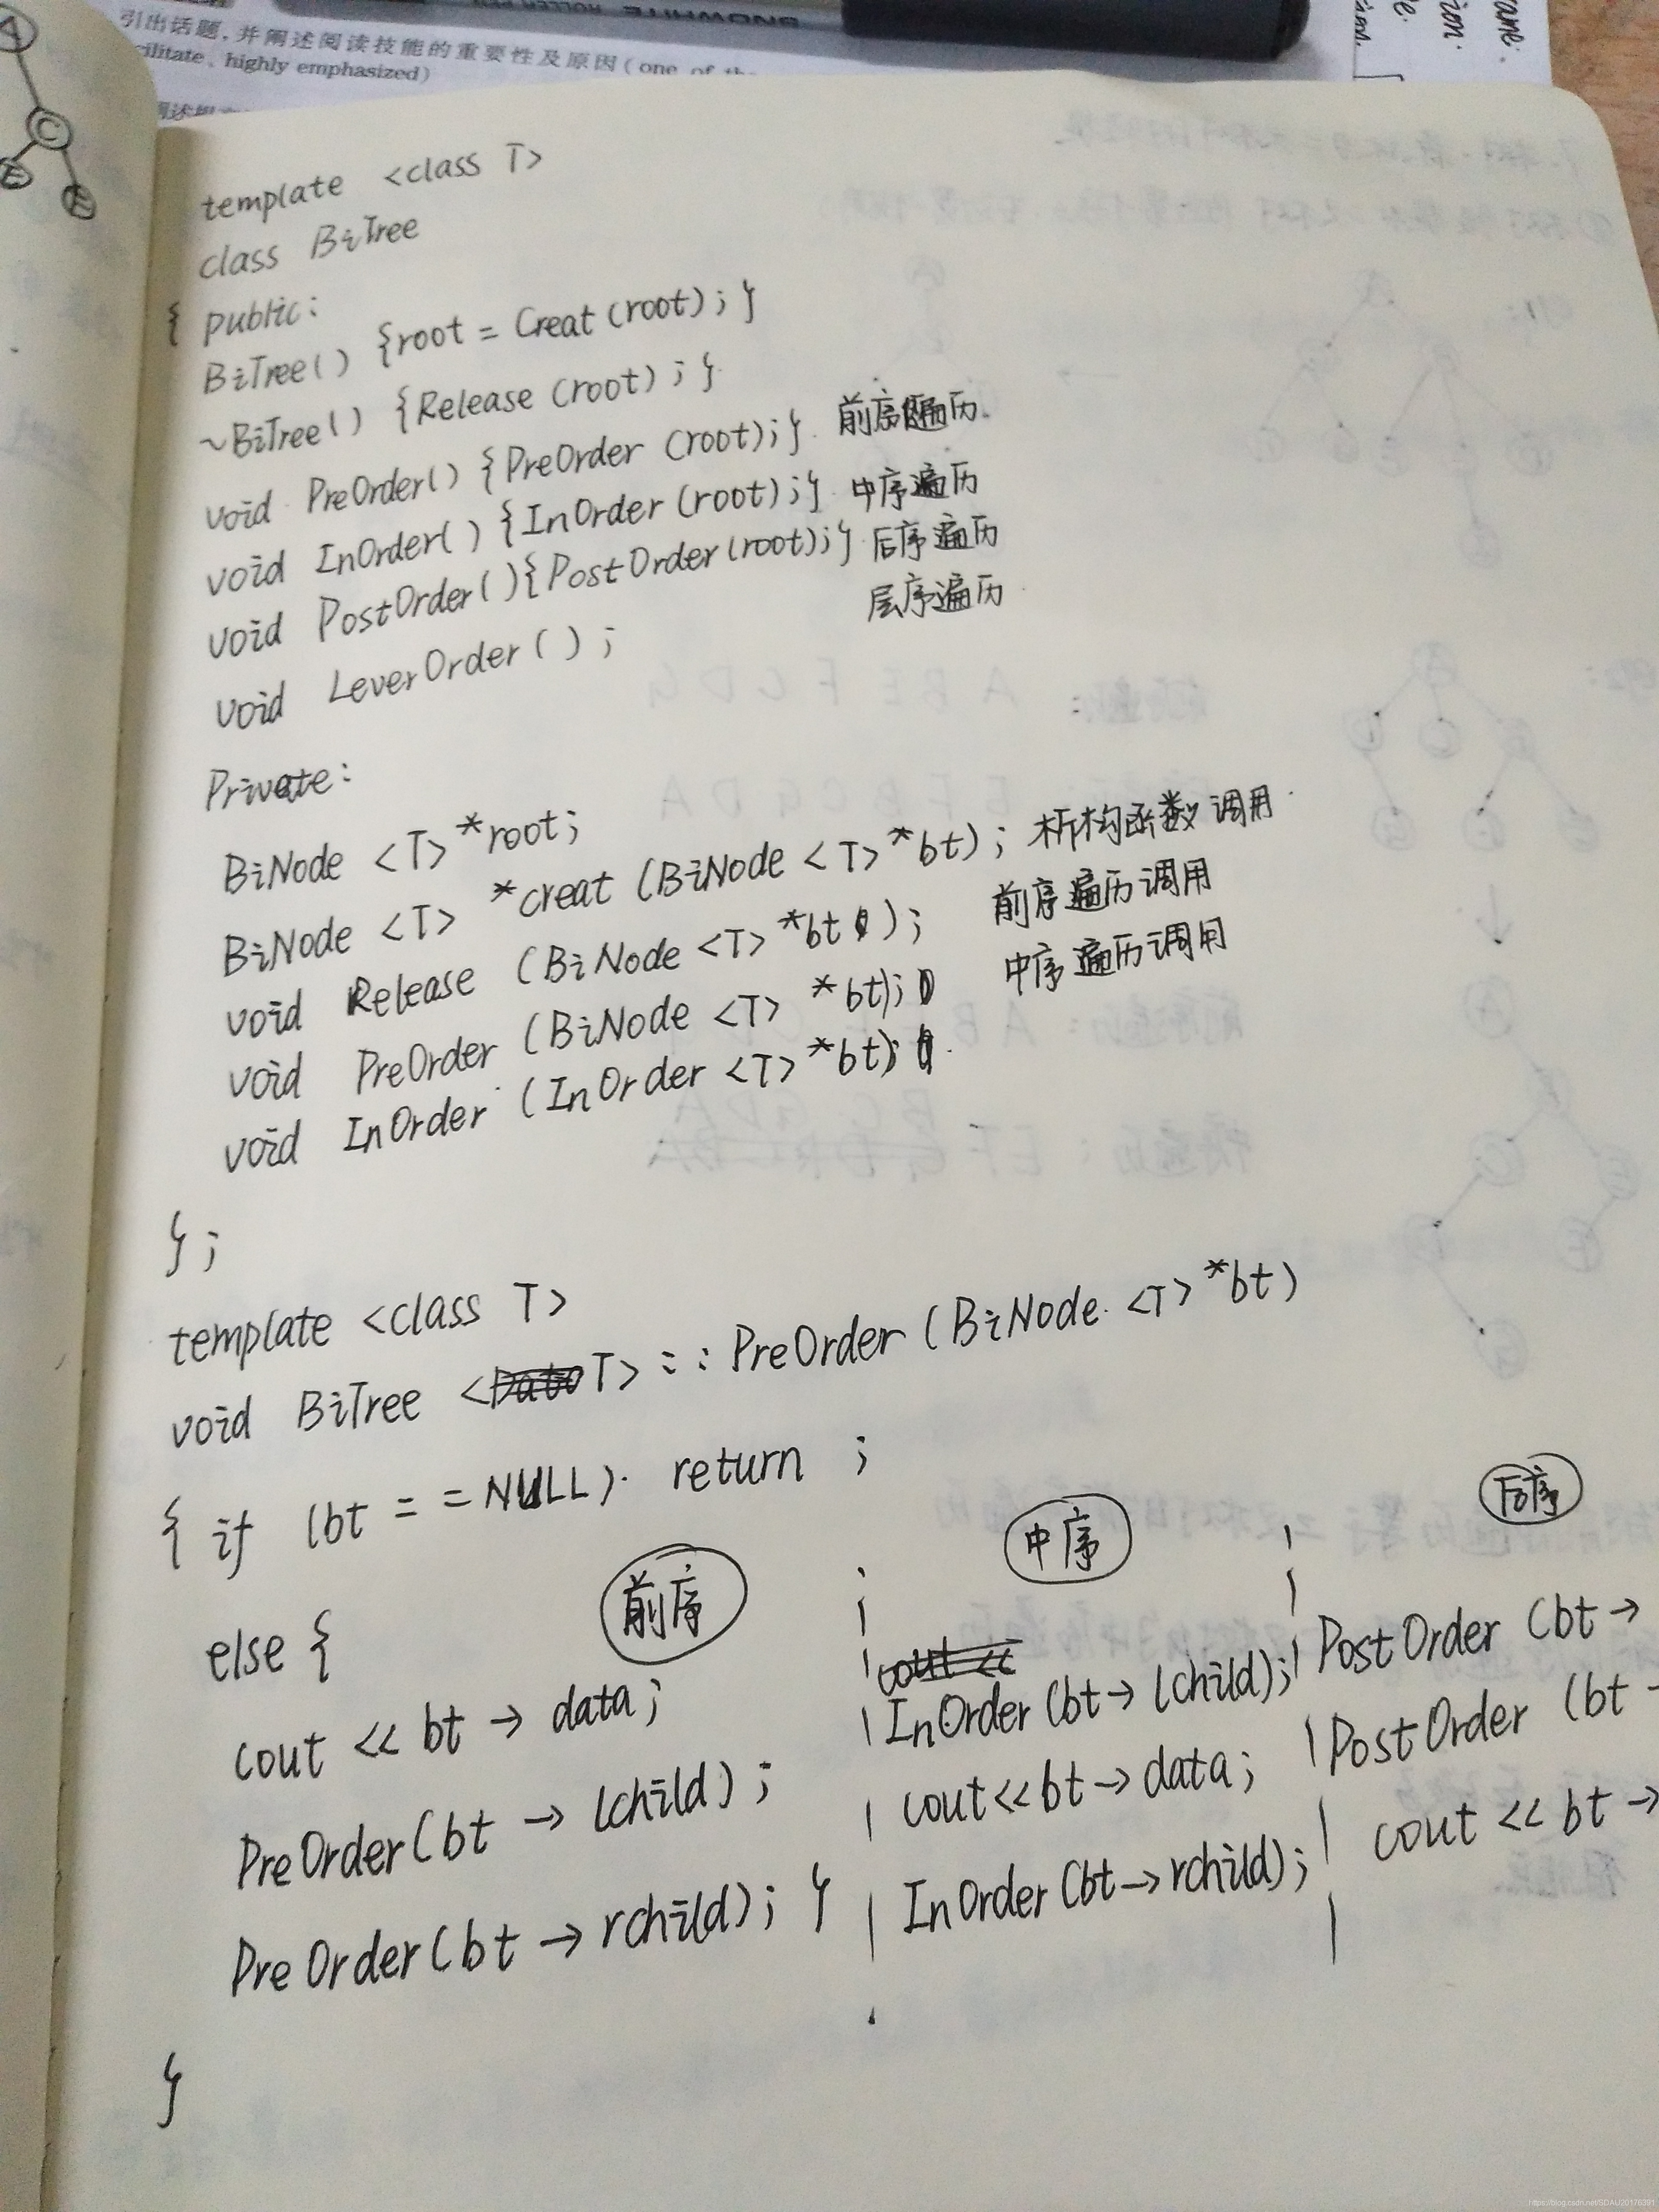 SNOWHITE ROLLER PEN
引出话题,并阐述阅读技能的重要性及原因(one of the
cilitate、highly emphasized)
A
C
E
template <class T>
class BiTree
{ public:
BiTree() {root = Creat (root); }
~BiTree() {Release (root); }
void PreOrder() {PreOrder (root);} 前序遍历.
void InOrder() {InOrder (root);} 中序遍历
void PostOrder(){PostOrder(root);} 后序遍历
void LeverOrder(); 层序遍历
Private:
BiNode <T> *root;
BiNode <T> *creat (BiNode <T> *bt); 析构函数调用
void Release (BiNode <T> *bt); 前序遍历调用
void PreOrder (BiNode <T> *bt); 中序遍历调用
void InOrder (InOrder <T> *bt);
};
template <class T>
void BiTree <T> :: PreOrder (BiNode <T> *bt)
{ if (bt == NULL) return ;
else {
前序
cout << bt → data;
PreOrder(bt → lchild);
PreOrder(bt → rchild); }
中序
cout <<
InOrder (bt→ lchild);
cout<<bt→data;
InOrder (bt→rchild);
后序
PostOrder (bt→
PostOrder (bt→
cout << bt→
}
https://blog.csdn.net/SDAU20176391